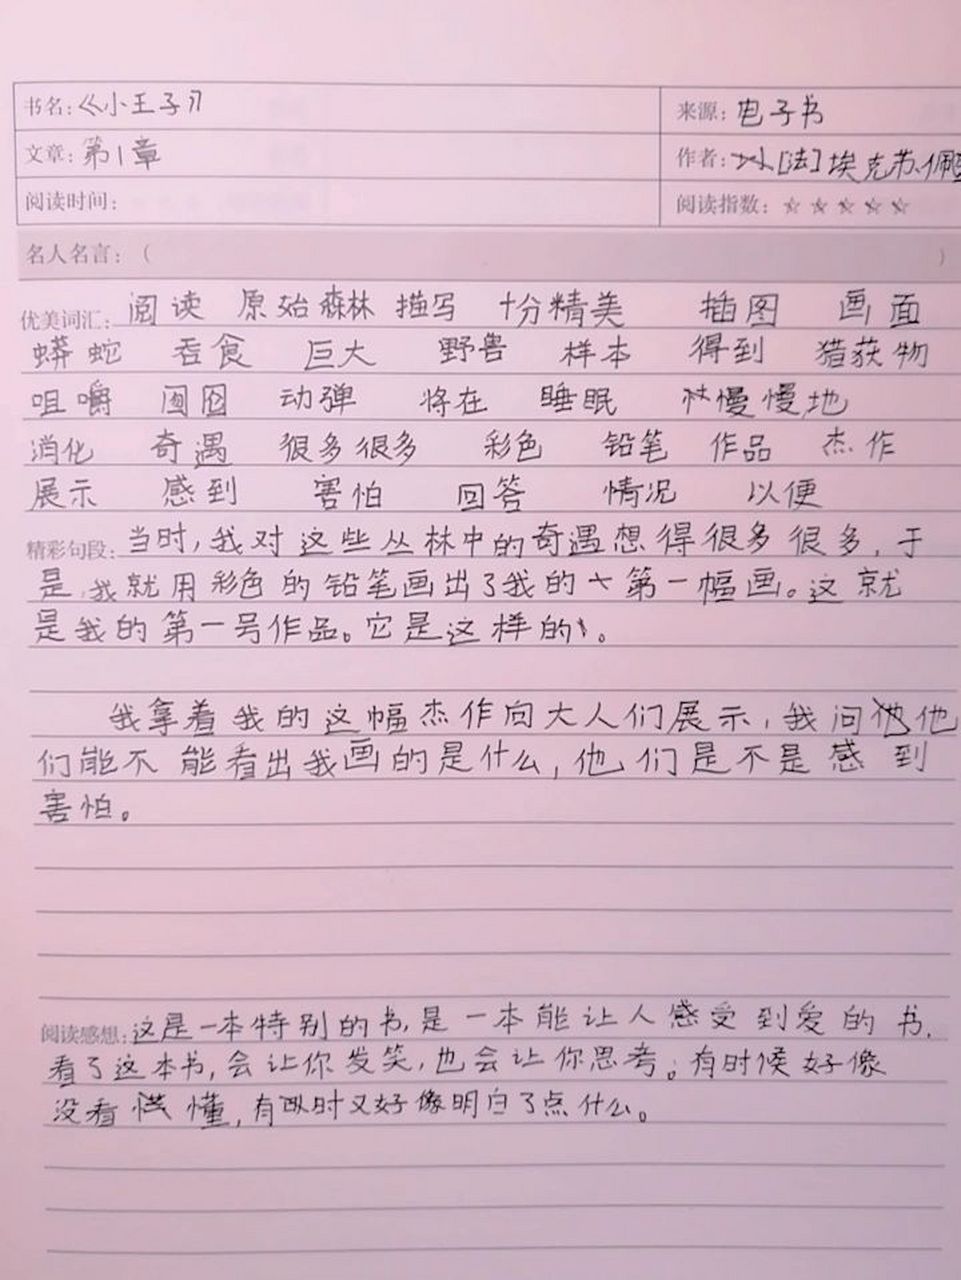 书名：《小王子》 来源：电子书
文章：第1章 作者：[法]埃克苏佩
阅读时间： 阅读指数：☆☆☆☆☆
名人名言：（ ）
优美词汇：阅读 原始森林 描写 十分精美 插图 画面
蟒蛇 吞食 巨大 野兽 样本 得到 猎获物
咀嚼 囫囵 动弹 将在 睡眠 慢慢地
消化 奇遇 很多很多 彩色 铅笔 作品 杰作
展示 感到 害怕 回答 情况 以便
精彩句段：当时，我对这些丛林中的奇遇想得很多很多，于
是，我就用彩色的铅笔画出了我的第一幅画。这就
是我的第一号作品。它是这样的。
我拿着我的这幅杰作向大人们展示，我问他
们能不能看出我画的是什么，他们是不是感到
害怕。
阅读感想：这是一本特别的书，是一本能让人感受到爱的书，
看了这本书，会让你发笑，也会让你思考。有时候好像
没看懂，有时又好像明白了点什么。